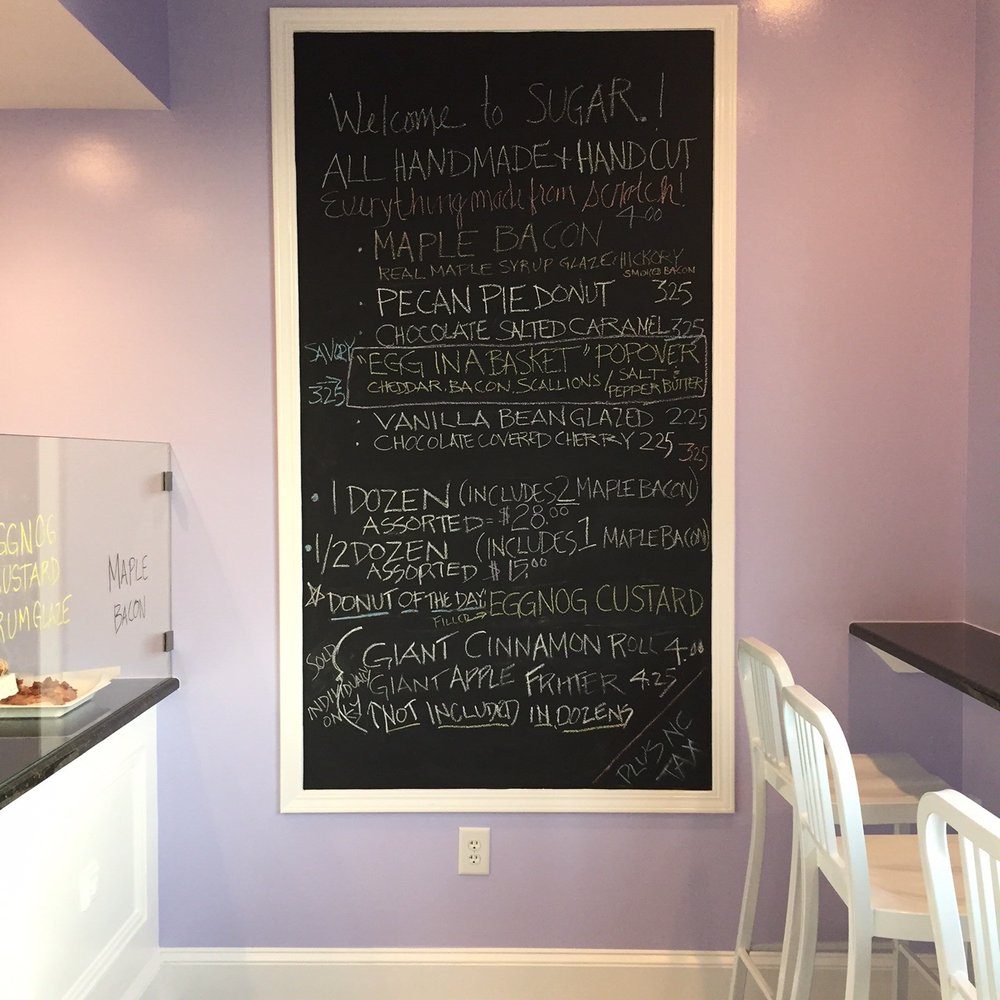 Welcome to SUGAR!
ALL HANDMADE + HAND CUT
Everything made from scratch!
4.00
· MAPLE BACON
REAL MAPLE SYRUP GLAZE + HICKORY
SMOKED BACON
· PECAN PIE DONUT 325
· CHOCOLATE SALTED CARAMEL 325
SAVORY
→
325
"EGG IN A BASKET" POPOVER
CHEDDAR. BACON. SCALLIONS / SALT +
PEPPER BUTTER
· VANILLA BEAN GLAZED 225
· CHOCOLATE COVERED CHERRY 225
325
· 1 DOZEN (INCLUDES 2 MAPLE BACON)
ASSORTED = $28.00
· 1/2 DOZEN (INCLUDES 1 MAPLE BACON)
ASSORTED $15.00
☆ DONUT OF THE DAY: EGGNOG CUSTARD
FILLED →
SOLD
INDIVIDUALLY
ONLY
GIANT CINNAMON ROLL 4.00
GIANT APPLE FRITTER 4.25
NOT INCLUDED IN DOZENS
PLUS NC
TAX
GGNOG
USTARD
RUM GLAZE
MAPLE
BACON